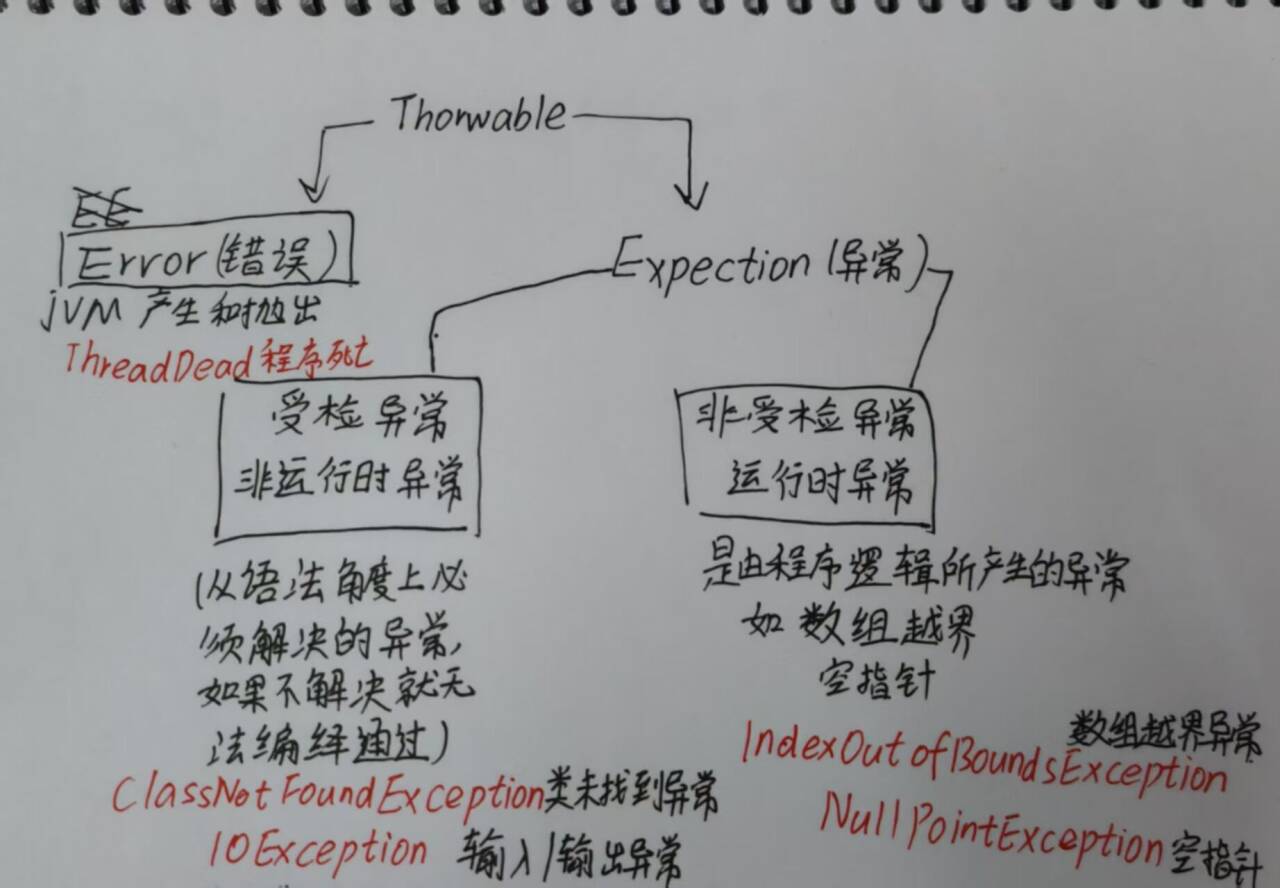 Thorwable
Error(错误)
jVM 产生和抛出
ThreadDead程序死亡
Expection(异常)
受检异常
非运行时异常
(从语法角度上必
须解决的异常,
如果不解决就无
法编绎通过)
ClassNotFoundException类未找到异常
IOException 输入/输出异常
非受检异常
运行时异常
是由程序逻辑所产生的异常
如数组越界
空指针
数组越界异常
IndexOutofBoundsException
NullPointException空指针